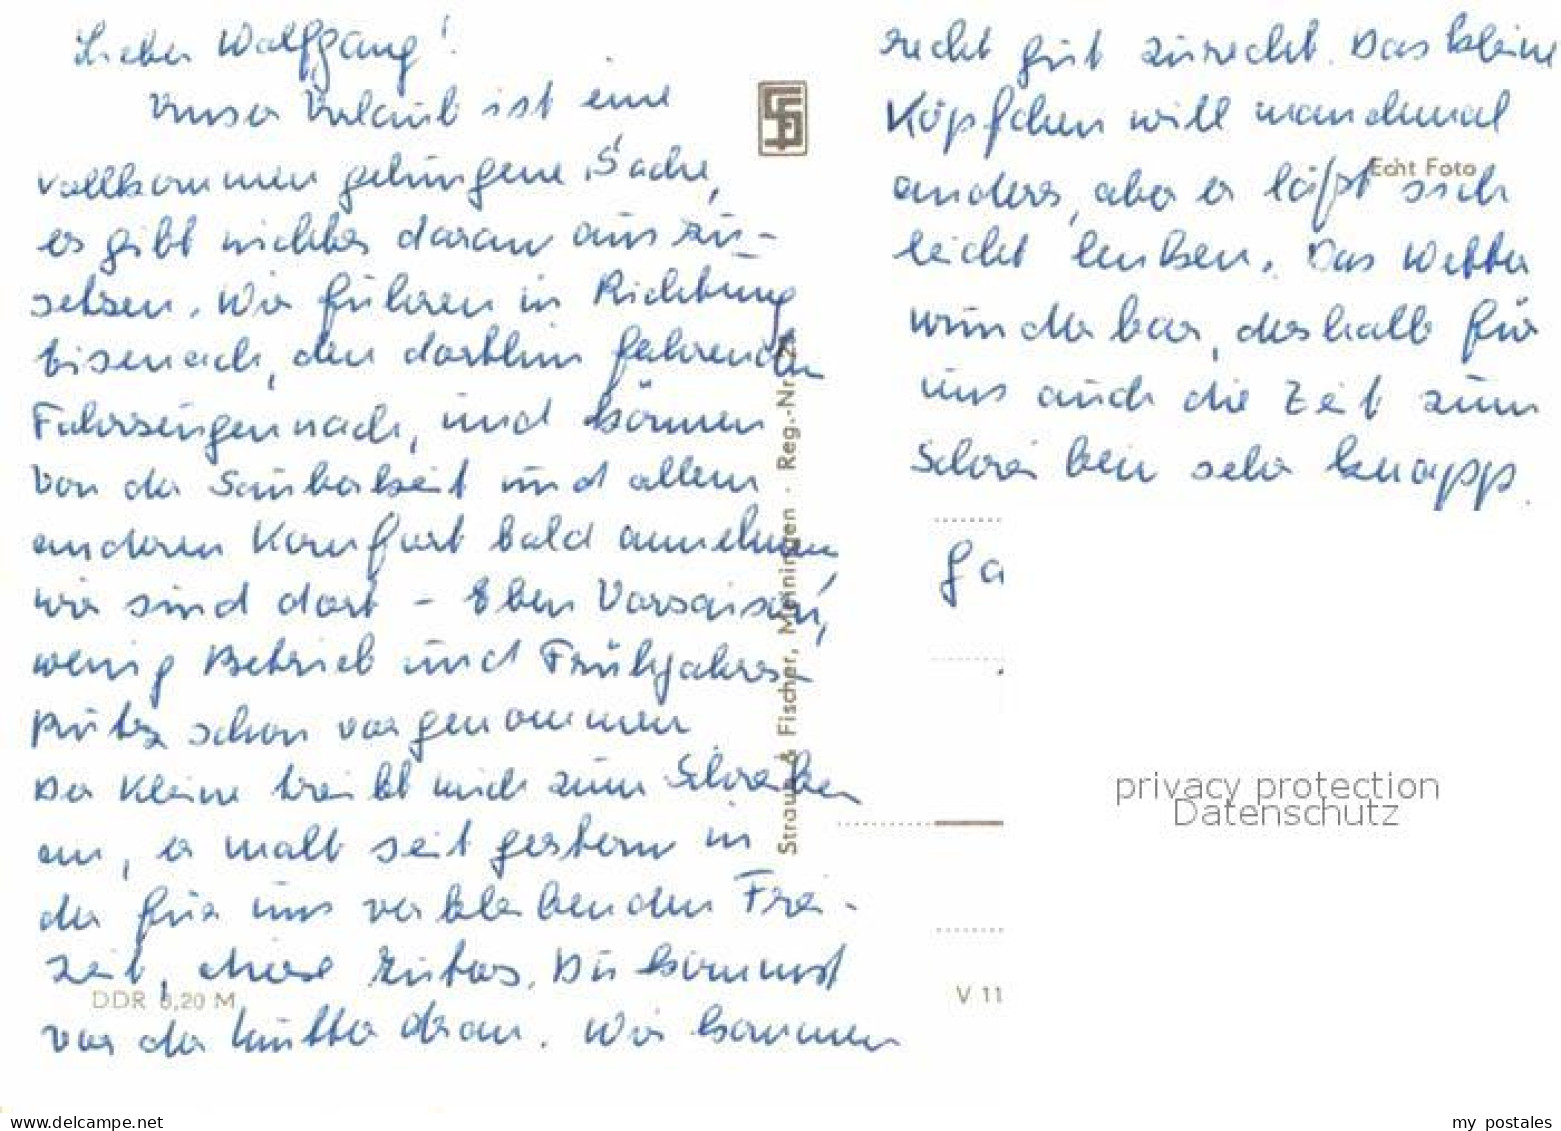 Lieber Wolfgang!
Unser Urlaub ist eine
vollkommen gelungene Sache,
es gibt nichts daran auszu-
setzen. Wir fuhren in Richtung
Eisenach, den dorthin fahrenden
Fahrzeugen nach, und kamen
von der Sauberkeit und allem
anderen Komfort bald annehmen,
wir sind dort - Eben Vorsaison,
wenig Betrieb und Frühjahrs-
putz schon vorgenommen
Der Kleine treibt mich zum Schreiben
an, er malt seit gestern in
der für uns verbleibenden Frei-
zeit, diese
Du kommst
vor der Mutter dran. Wir kommen
recht gut zurecht. Das kleine
Köpfchen will manchmal
anders, aber er läßt sich
leicht lenken. Das Wetter
wunderbar, deshalb für
uns auch die Zeit zum
Schreiben sehr knapp.
Echt Foto
Straub & Fischer, Meiningen · Reg.-Nr.
DDR 0,20 M
V 11
privacy protection
Datenschutz
my postales
www.delcampe.net